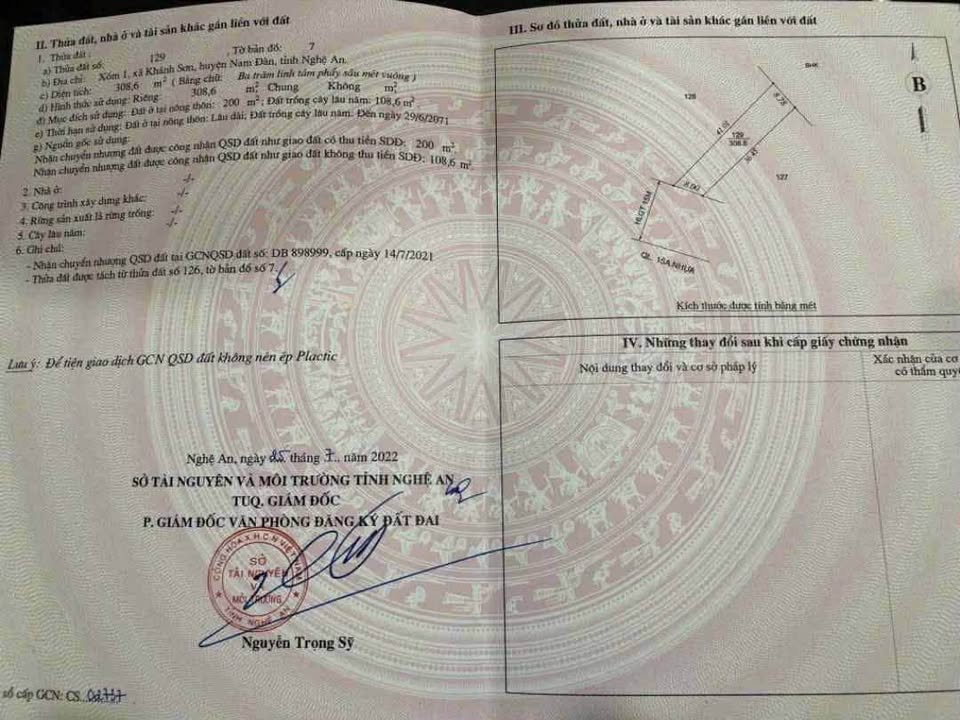 II. Thửa đất, nhà ở và tài sản khác gắn liền với đất
1. Thửa đất :
a) Thửa đất số: 129 , Tờ bản đồ: 7
b) Địa chỉ: Xóm 1, xã Khánh Sơn, huyện Nam Đàn, tỉnh Nghệ An.
c) Diện tích: 308,6 m² ( Bằng chữ: Ba trăm linh tám phẩy sáu mét vuông )
d) Hình thức sử dụng: Riêng: 308,6 m² Chung Không m²
đ) Mục đích sử dụng: Đất ở tại nông thôn: 200 m²; Đất trồng cây lâu năm: 108,6 m².
e) Thời hạn sử dụng: Đất ở tại nông thôn: Lâu dài; Đất trồng cây lâu năm: Đến ngày 29/6/2071
g) Nguồn gốc sử dụng:
Nhận chuyển nhượng đất được công nhận QSD đất như giao đất có thu tiền SDĐ: 200 m².
Nhận chuyển nhượng đất được công nhận QSD đất như giao đất không thu tiền SDĐ: 108,6 m².
2. Nhà ở: -/-
3. Công trình xây dựng khác: -/-
4. Rừng sản xuất là rừng trồng: -/-
5. Cây lâu năm: -/-
6. Ghi chú:
- Nhận chuyển nhượng QSD đất tại GCNQSD đất số: DB 898999, cấp ngày 14/7/2021
- Thửa đất được tách từ thửa đất số 126, tờ bản đồ số 7.
Lưu ý: Để tiện giao dịch GCN QSD đất không nên ép Plactic
Nghệ An, ngày 25 tháng 7.. năm 2022
SỞ TÀI NGUYÊN VÀ MÔI TRƯỜNG TỈNH NGHỆ AN
TUQ. GIÁM ĐỐC
P. GIÁM ĐỐC VĂN PHÒNG ĐĂNG KÝ ĐẤT ĐAI
CỘNG HÒA X.H.C.N VIỆT NAM
SỞ
TÀI NGUYÊN
VÀ
MÔI TRƯỜNG
TỈNH NGHỆ AN
Nguyễn Trọng Sỹ
số cấp GCN: CS...
III. Sơ đồ thửa đất, nhà ở và tài sản khác gắn liền với đất
BHK
B
128
8.28
41.01
129
308.6
127
8.00
HLGT 15M
QL 15A NHỰA
Kích thước được tính bằng mét
IV. Những thay đổi sau khi cấp giấy chứng nhận
Nội dung thay đổi và cơ sở pháp lý
Xác nhận của cơ
có thẩm quy